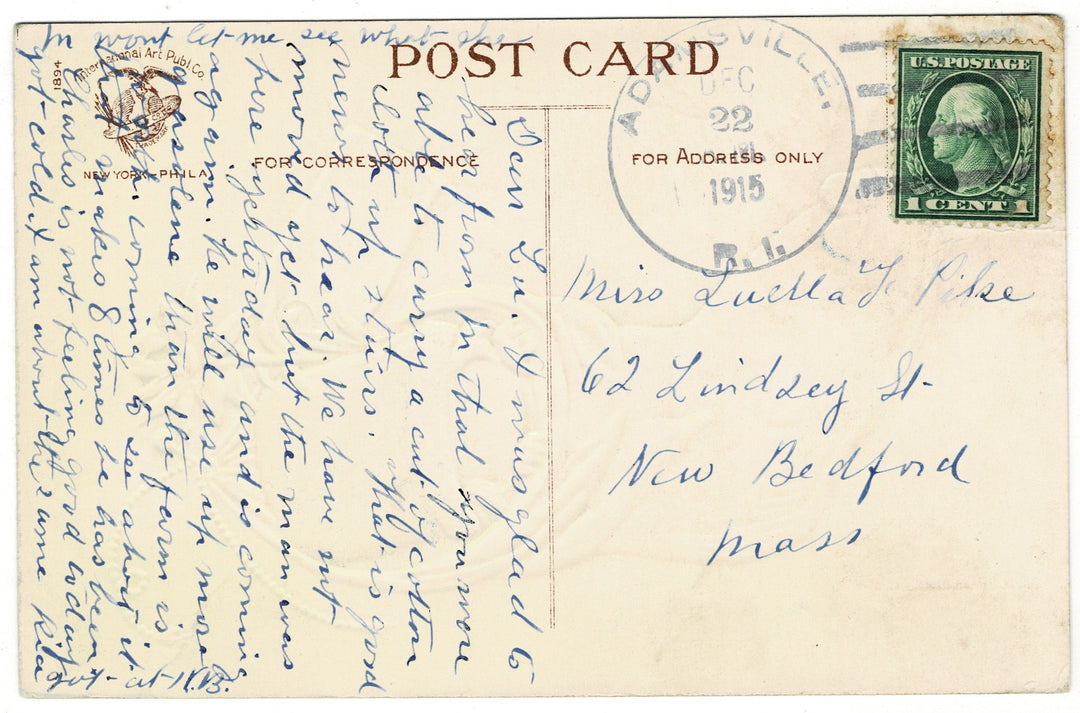 POST CARD
1894
International Art Publ. Co.
NEW YORK - PHILA.
FOR CORRESPONDENCE
FOR ADDRESS ONLY
ADAMSVILLE,
DEC
22
1915
R. I.
U.S. POSTAGE
1 CENT 1
Miss Luella F Pike
62 Lindsey St-
New Bedford
Mass
Dear Lu. I was glad to
hear from M that you were
able to carry a cut of cotton
cloth up stairs. That is good
news to hear. We have not
moved yet but the man was
here yesterday and is coming
again. He will use up more
gasolene than the farm is
worth coming to see about it.
that makes 8 times he has been
Charles is not feeling good today
got cold I am about the same Rida
got at N.B.
M wont let me see what she